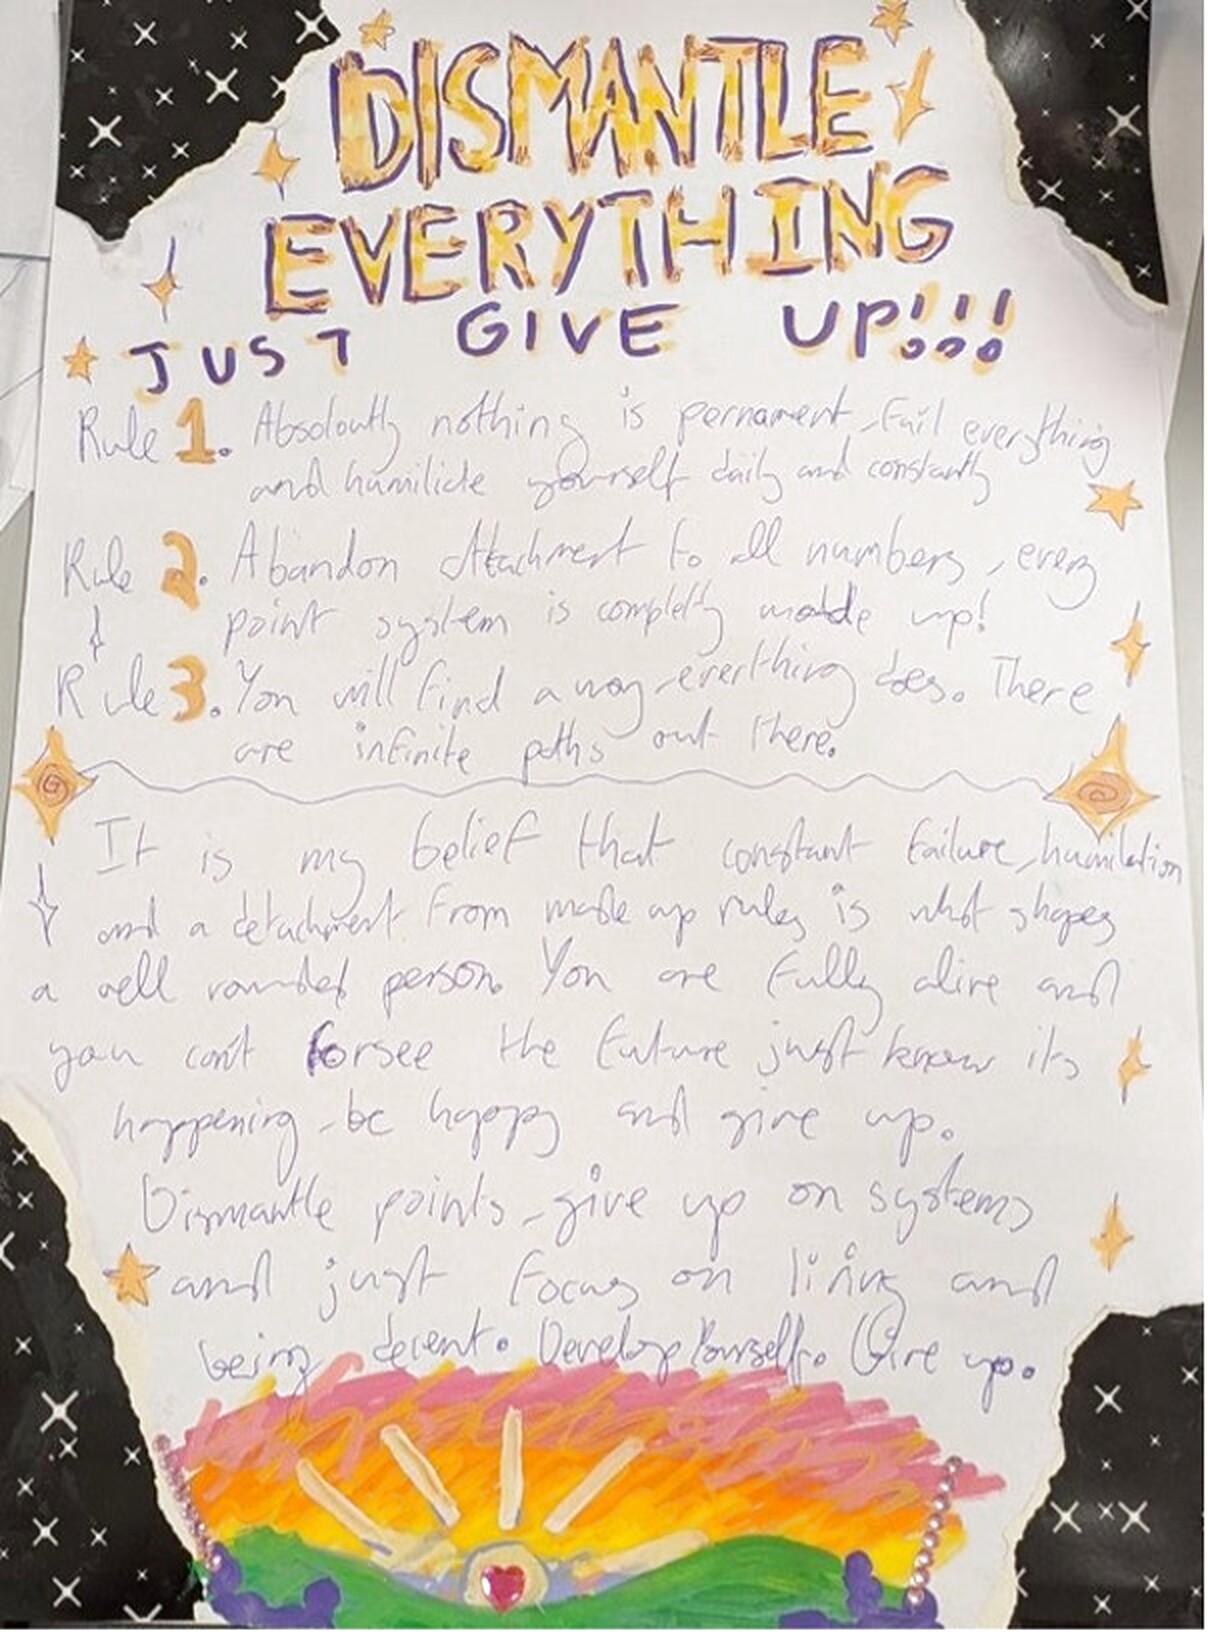 DISMANTLE
EVERYTHING
JUST GIVE UP!!!
Rule 1. Absoloutly nothing is pernament, Fail everything
and humiliate yourself daily and constantly
Rule 2. Abandon Attachment to all numbers, every
point system is completly made up!
Rule 3. You will find a way, everthing does. There
are infinite paths out there.
It is my belief that constant failure, humiliation
and a detachment from made up rules is what shapes
a well rounded person. You are fully alive and
you can't forsee the future just know its
happening, be happy and give up.
Dismantle points, give up on systems
and just focus on living and
being decent. Develop Yourself. Give up.